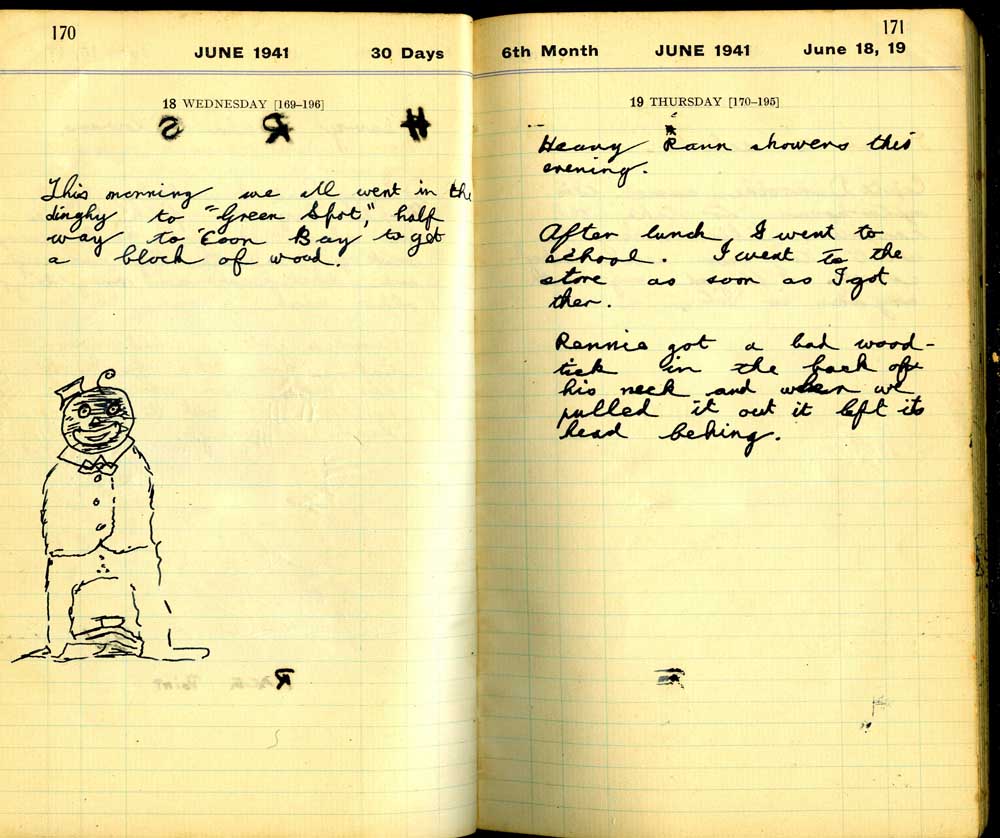 170
JUNE 1941 30 Days
18 WEDNESDAY [169–196]
S R H
This morning we all went in the
dinghy to "Green Spot," half
way to 'Coon Bay to get
a block of wood.
R
171
6th Month JUNE 1941 June 18, 19
19 THURSDAY [170–195]
Heavy Rann showers this
evening.
After lunch I went to
school. I went to the
store as soon as I got
ther.
Rennie got a bad wood-
tick in the back of
his neck and when we
pulled it out it left its
head behing.